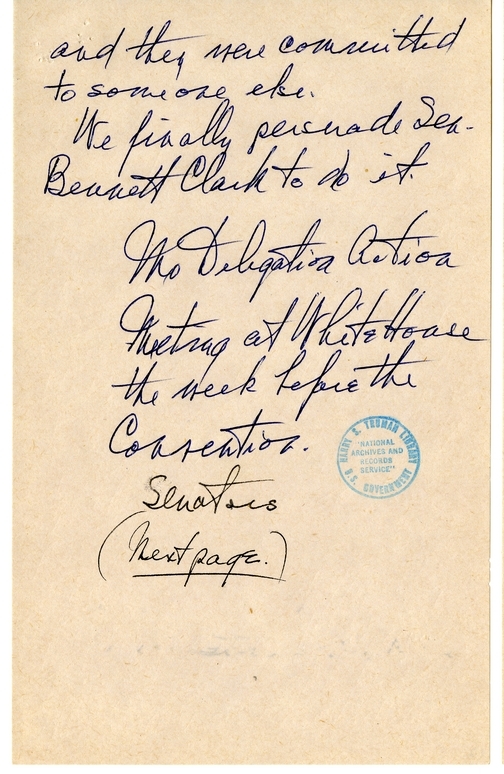 and they were committed
to someone else.
We finally persuade Sen.
Bennett Clark to do it.
Mo Delegation Action
Meeting at White House
the week before the
Convention.
HARRY S. TRUMAN LIBRARY
"NATIONAL
ARCHIVES AND
RECORDS
SERVICE"
U.S. GOVERNMENT
Senators
(Next page.)